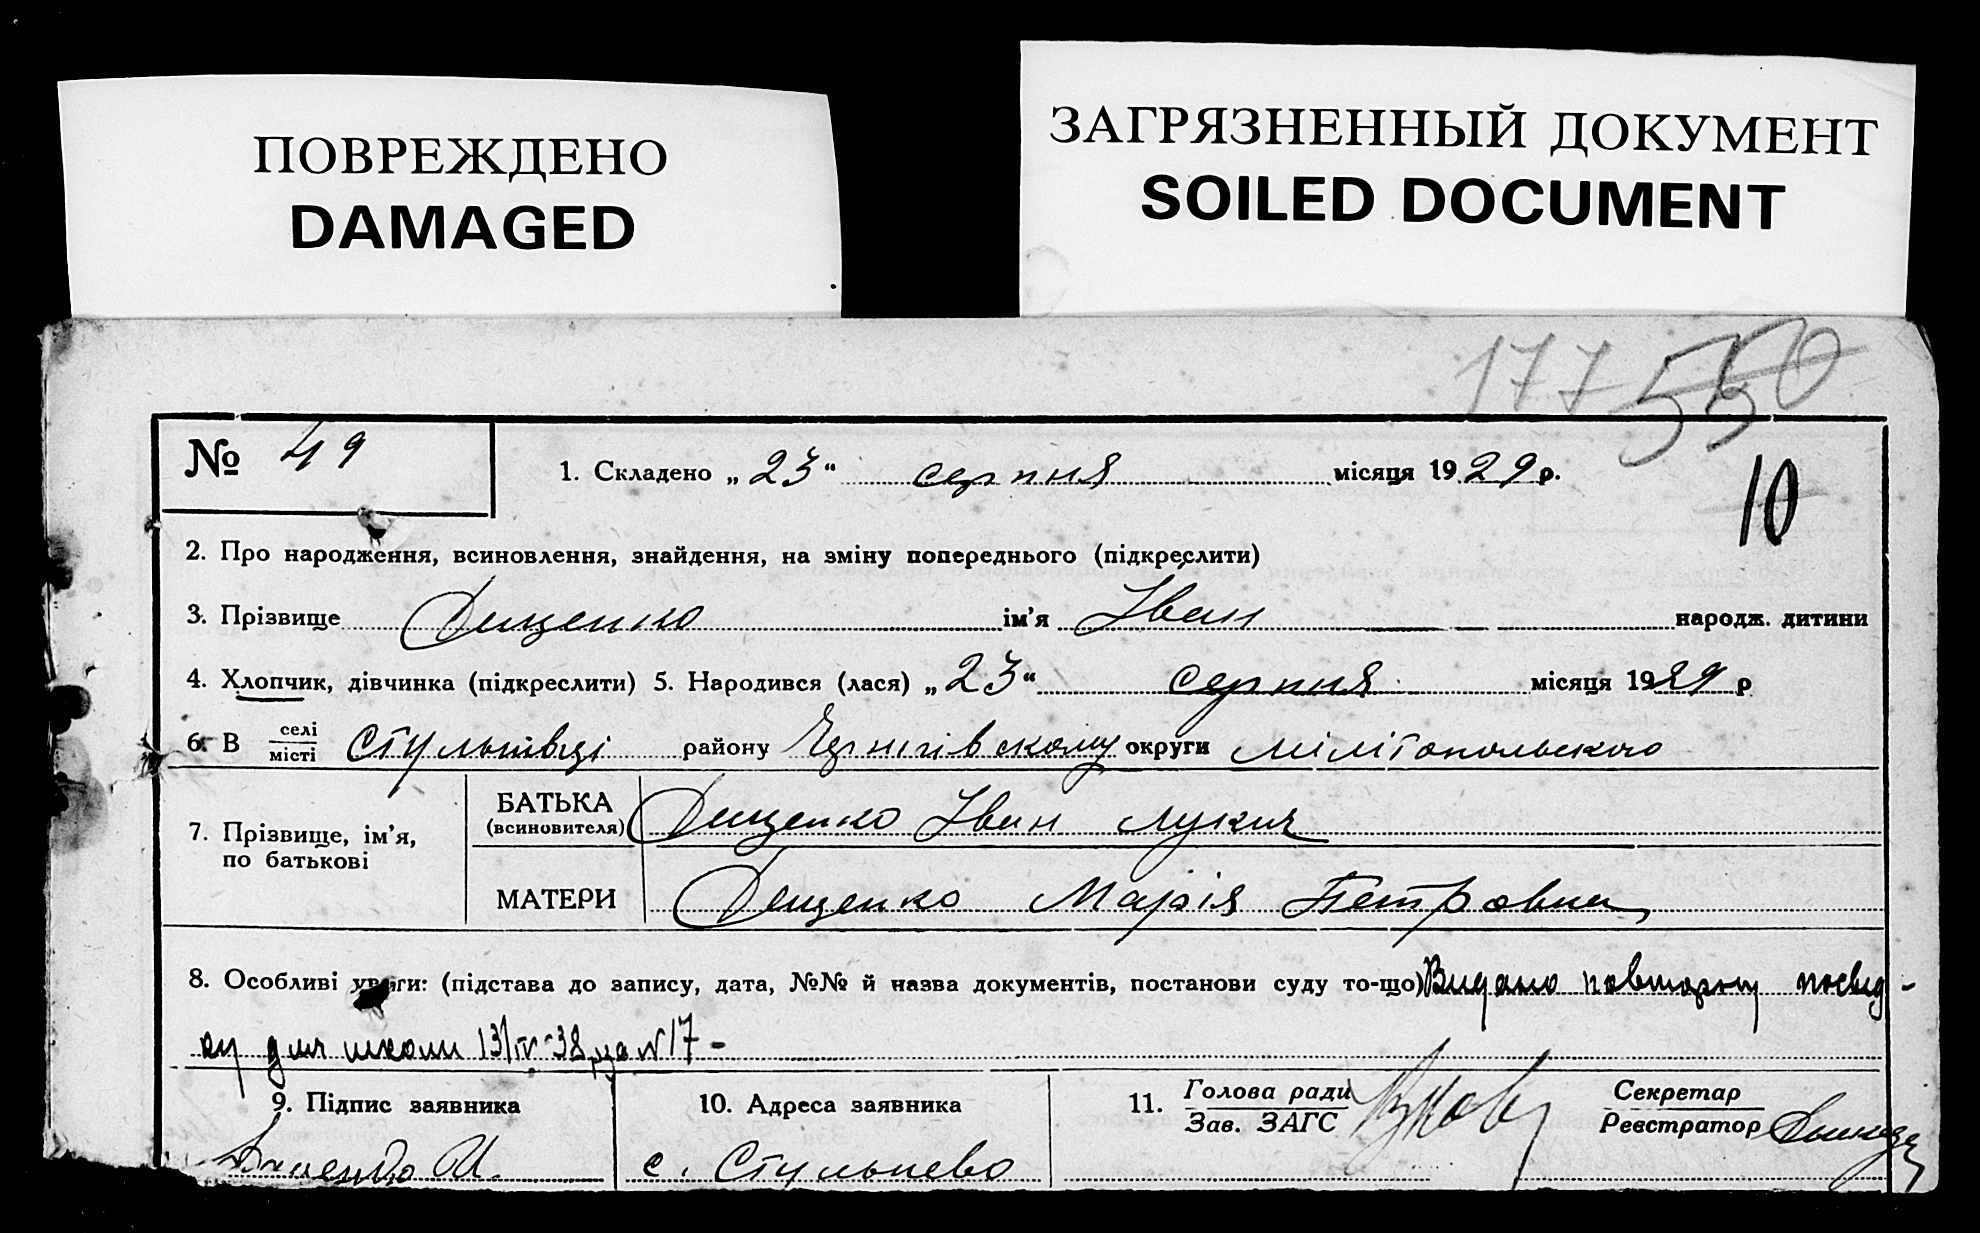 ПОВРЕЖДЕНО
DAMAGED
ЗАГРЯЗНЕННЫЙ ДОКУМЕНТ
SOILED DOCUMENT
177 550
№ 49
1. Складено „23“ серпня місяця 1929 р.
10
2. Про народження, всиновлення, знайдення, на зміну попереднього (підкреслити)
3. Прізвище Дещенко ім’я Іван народж. дитини
4. Хлопчик, дівчинка (підкреслити) 5. Народився (лася) „23“ серпня місяця 1929 р
6. В селі місті Стульнівці району Чернигівскому округи Мілітопольского
7. Прізвище, ім’я, по батькові
БАТЬКА (всиновителя) Дещенко Іван Лукич
МАТЕРИ Дещенко Марія Петровна
8. Особливі уваги: (підстава до запису, дата, №№ й назва документів, постанови суду то-що) Видано повторну посвід-
ку для школи 13/IV-38 за N 17 -
9. Підпис заявника
10. Адреса заявника
11. Голова ради Зав. ЗАГС
Секретар Реєстратор
с. Стульнево